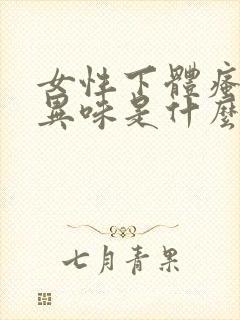 女性下體瘙
異味是什麼
七月青果